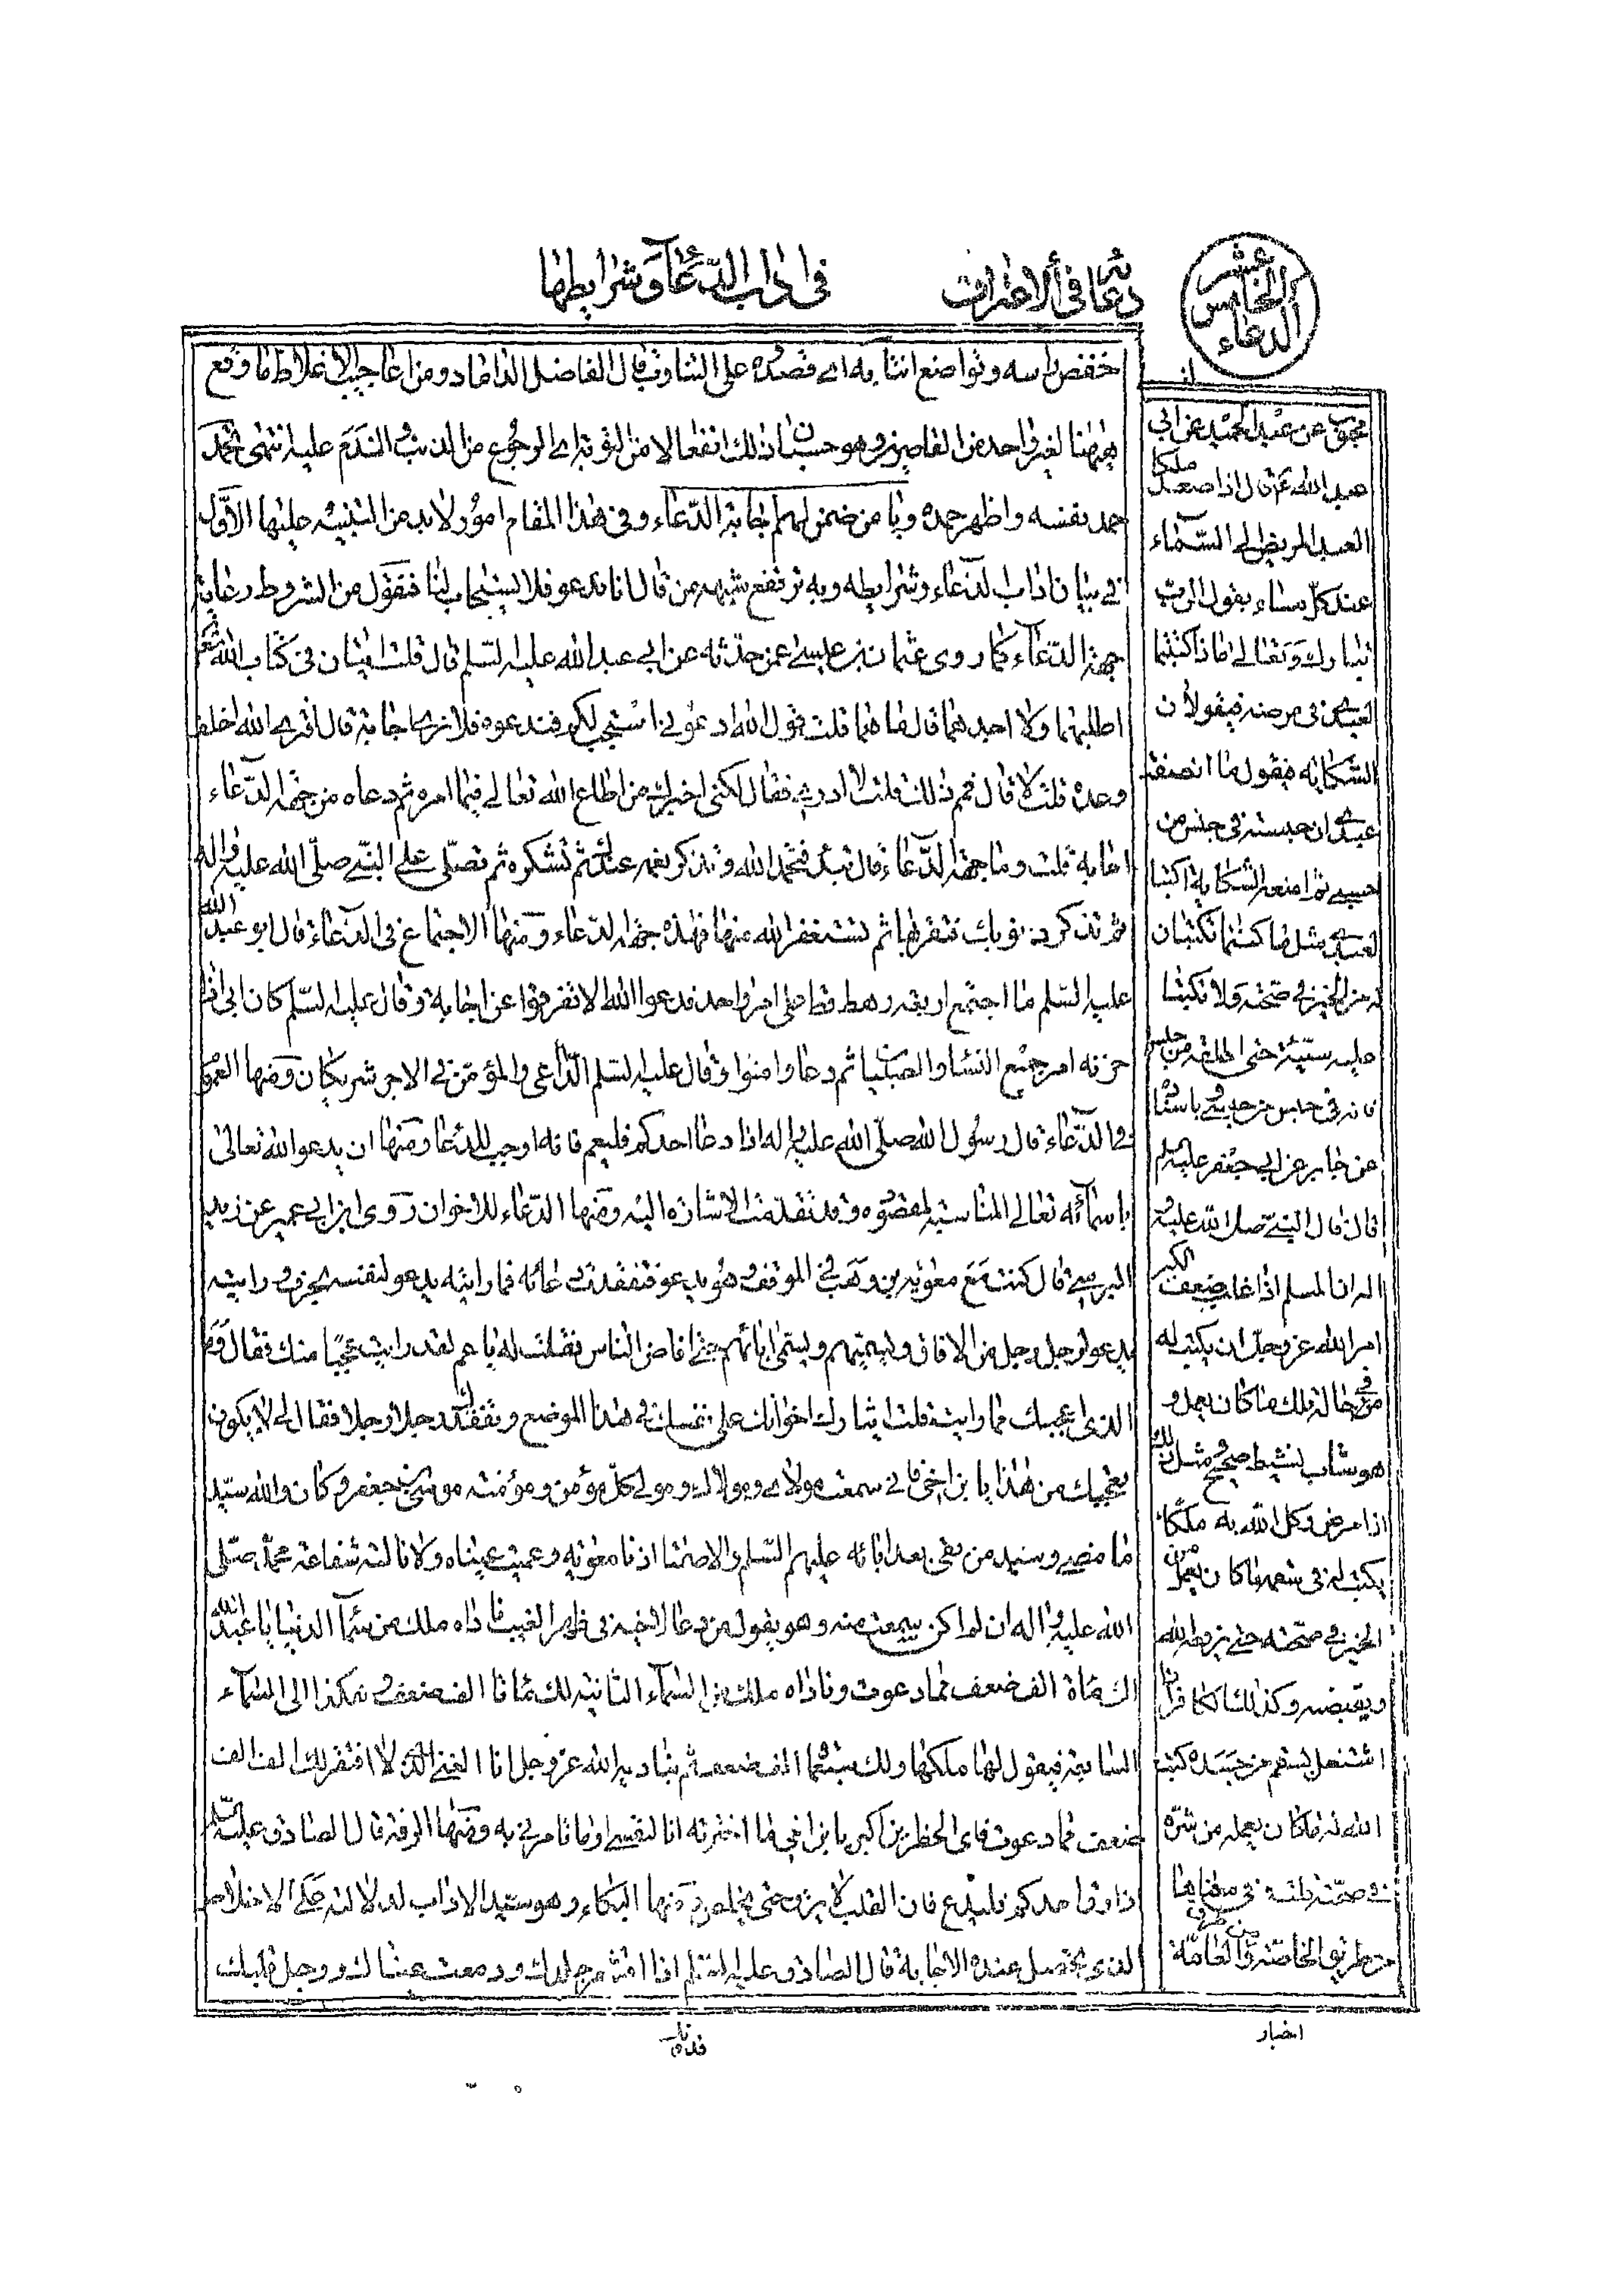 في اداب الدّعاء وشرايطها
دعائه في الاعتراف
الدعاء الخامس عشر
خفض راسه وتواضع انتابه اي قصده على التناوب قال الفاضل الداماد ومن اعاجيب الاغلاط ما وقع
ههنا لغير واحد من القاصرين وهو حسبان ان ذلك انفعالا من التوبة اي الرجوع من الذنب والندم عليه انتهى تحمد
حمد نفسه واظهر حمده ويا من ضمن لهم اجابة الدّعاء وفي هذا المقام امور لا بد من التنبيه عليها الأوّل
في بيان اداب الدّعاء وشرايطه وبه ترتفع شبهه من قال انا ندعو فلا يستجاب لنا فنقول من الشروط رعاية
جهة الدّعاء كما روى عثمان بن عيسى عمن حدّثه عن ابي عبد الله عليه السّلم قال قلت ايتان في كتاب الله
اطلبهما ولا اجدهما قال فما هما قلت قول الله ادعوني استجب لكم فندعوه فلا نرى اجابة قال افترى الله اخلف
وعده قلت لا قال فمم ذلك قلت لا ادري فقال لكنى اخبرك من اطاع الله تعالى فيما امره ثم دعاه من جهة الدّعاء
اجابه قلت وما جهة الدّعاء قال تبدء فتحمد الله وتذكر نعمه عندك ثم تشكره ثم تصلّى على النبي صلّى الله عليه واله
ثم تذكر ذنوبك فتقر بها ثم تستغفر الله منها فهذه جهة الدّعاء ومنها الاجتماع في الدعاء قال ابو عبد الله
عليه السّلم ما اجتمع اربعه رهط قط على امر واحد فدعوا الله الا تفرقوا عن اجابة وقال عليه السّلم كان ابي اذا
حزنه امر جمع النساء والصبيان ثم دعا وامنوا وقال عليه السّلم الدّاعي والمؤمّن في الاجر شريكان ومنها العموم
في الدّعاء قال رسول الله صلّى الله عليه واله اذا دعا احدكم فليعم فانه اوجب للدعاء ومنها ان يدعو الله تعالى
باسمائه تعالى المناسبة لمقصوده وقد تقدّمت الاشارة اليه ومنها الدّعاء للاخوان روى ابن ابي عمير عن زيد
النرسي قال كنت مع معوية بن وهب في الموقف وهو يدعو فتفقدت دعائه فما رايته يدعو لنفسه بحرف ورايته
يدعو لرجل رجل من الافاق ويسميهم ويسمى ابائهم حتى افاض الناس فقلت له يا عم لقد رايت عجبًا منك فقال وما
الذي اعجبك مما رايت قلت ايثارك اخوانك على نفسك في هذا الموضع وتفقدك رجلا رجلا فقال لي لا يكون
تعجبك من هذا يا بن اخي فاني سمعت مولاي ومولاك ومولى كل مؤمن ومؤمنة موسى بن جعفر وكان والله سيّد
ما مضى وسيد من بقى بعد ابائه عليهم السّلم والا صمتا اذنا معوية وعميت عيناه ولا نالته شفاعة محمّد صلّى
الله عليه واله ان لم اكن سمعت منه وهو يقول من دعا لاخيه في ظهر الغيب ناداه ملك من سماء الدنيا يا عبد الله
لك مأة الف ضعف مما دعوت وناداه ملك من السّماء الثانية لك مائتا الف ضعف وهكذا الى السّماء
السابعة فيقول لها ملكها ولك سبعمائة الف ضعف ثم يناديه الله عز وجل انا الغني الذي لا افتقر لك الف الف
ضعف مما دعوت فاى الحظرين اكبر يا بن اخي ما اخترته انا لنفسي او ما تامرني به ومنها الرقة قال الصادق عليه السّلم
اذا رق احدكم فليدع فان القلب لا يرق حتى يخلص ومنها البكاء وهو سيد الاداب لدلالته على الاخلاص
الذي يحصل عنده الاجابة قال الصادق عليه السّلم اذا اقشعر جلدك ودمعت عيناك ووجل قلبك
فدونك
محبوب عن عبد الحميد عن ابي
عبد الله ع قال اذا صعد ملكا
العبد المريض الى السّماء
عند كلّ مساء يقول الرب
تبارك وتعالى ماذا كتبتما
لعبدي في مرضه فيقولان
الشكاية فيقول ما انصفت
عبدي ان حبسته في حبس من
حبسي ثم امنعه الشكاية اكتبا
لعبدي مثل ما كنتما تكتبان
له من الخير في صحّته ولا تكتبا
عليه سيّئة حتى اطلقه من حبسي
فانه في حبس من حبسي وباسناده
عن جابر عن ابي جعفر عليه السلم
قال قال النبيّ صلى الله عليه و
اله ان المسلم اذا غلبه ضعف الكبر
امر الله عز وجل ان يكتب له
في حاله تلك ما كان يعمل و
هو شاب نشيط صحيح ومثل ذلك
اذا مرض وكل الله به ملكا
يكتب له في سقمه ما كان يعمل من
الخير في صحّته حتى يرفعه الله
ويقبضه وكذلك الكافر اذا
اشتغل بسقم من جسده كتب
الله له ما كان يعمله من شرّه
في صحّته
من طريق الخاصّة والعامّة
اخبار